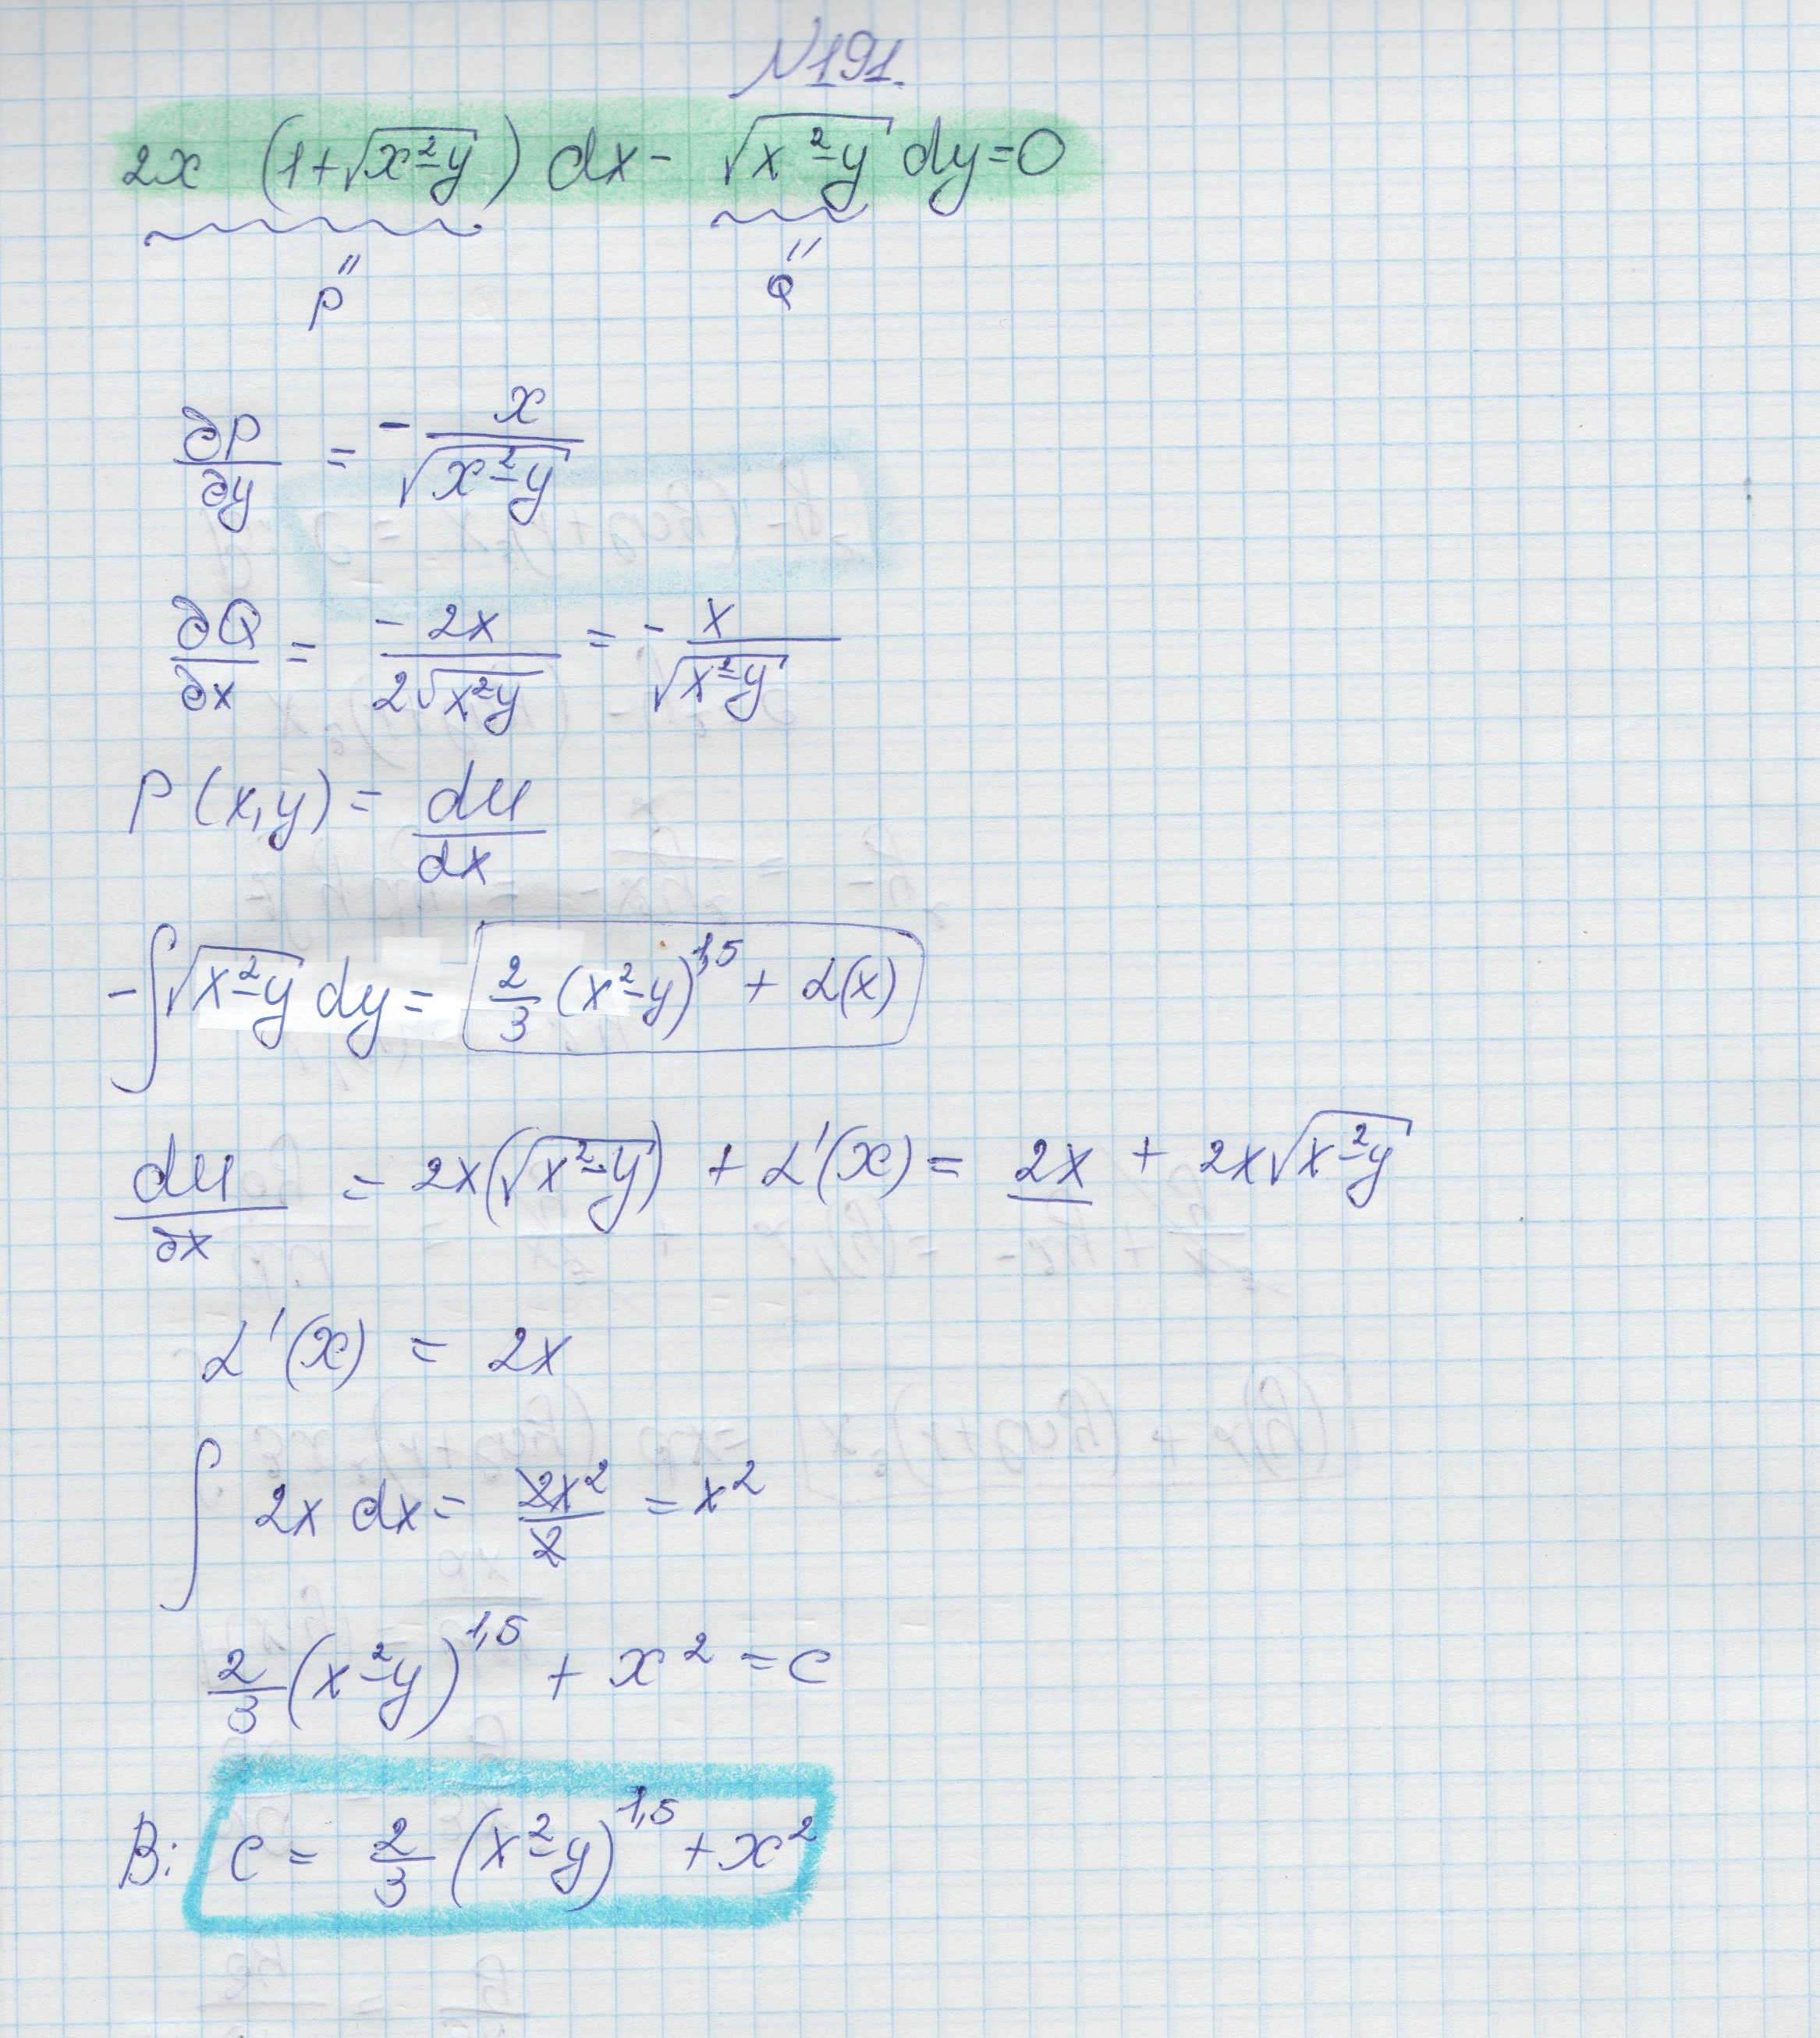 N191.
2x (1+√(x²-y)) dx - √(x²-y) dy=0
" "
P Q
∂P/∂y = - x/√(x²-y)
∂Q/∂x = -2x/(2√(x²-y)) = - x/√(x²-y)
P(x,y) = du/dx
-∫√(x²-y) dy = 2/3 (x²-y)^1,5 + α(x)
du/∂x = 2x(√(x²-y)) + α'(x) = 2x + 2x√(x²-y)
α'(x) = 2x
∫ 2x dx = 2x²/2 = x²
2/3 (x²-y)^1,5 + x² = c
B: c = 2/3 (x²-y)^1,5 + x²